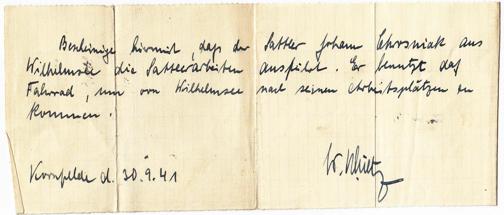 Bescheinige hiermit, daß der Sattler Johann Chrosniak aus
Wilhelmsee die Sattlerarbeiten ausführt. Er benutzt das
Fahrrad, um von Wilhelmsee nach seinen Arbeitsplätzen zu
kommen.
Kornfelde d. 30.9.41
W.